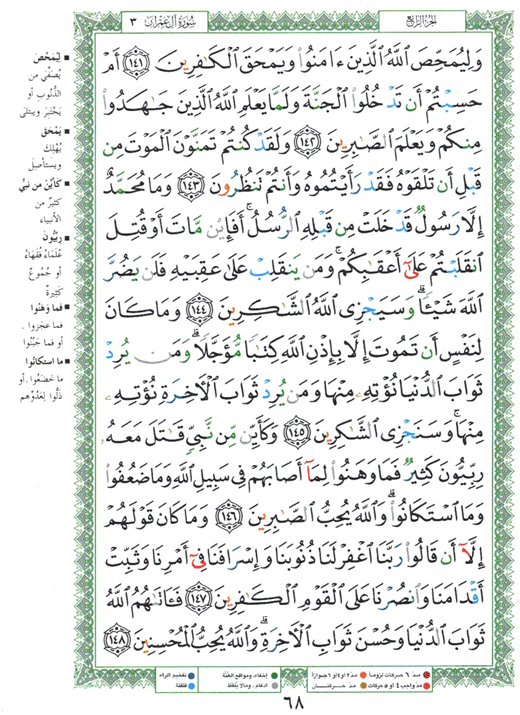 الجزء الرابع
سورة آل عمران ٣
وَلِيُمَحِّصَ اللَّهُ الَّذِينَ ءَامَنُوا وَيَمْحَقَ الْكَٰفِرِينَ ١٤١ أَمْ
حَسِبْتُمْ أَن تَدْخُلُوا الْجَنَّةَ وَلَمَّا يَعْلَمِ اللَّهُ الَّذِينَ جَٰهَدُوا
مِنكُمْ وَيَعْلَمَ الصَّٰبِرِينَ ١٤٢ وَلَقَدْ كُنتُمْ تَمَنَّوْنَ الْمَوْتَ مِن
قَبْلِ أَن تَلْقَوْهُ فَقَدْ رَأَيْتُمُوهُ وَأَنتُمْ تَنظُرُونَ ١٤٣ وَمَا مُحَمَّدٌ
إِلَّا رَسُولٌ قَدْ خَلَتْ مِن قَبْلِهِ الرُّسُلُ ۚ أَفَإِي۟ن مَّاتَ أَوْ قُتِلَ
انقَلَبْتُمْ عَلَىٰٓ أَعْقَٰبِكُمْ ۚ وَمَن يَنقَلِبْ عَلَىٰ عَقِبَيْهِ فَلَن يَضُرَّ
اللَّهَ شَيْـًٔا ۗ وَسَيَجْزِى اللَّهُ الشَّٰكِرِينَ ١٤٤ وَمَا كَانَ
لِنَفْسٍ أَن تَمُوتَ إِلَّا بِإِذْنِ اللَّهِ كِتَٰبًا مُّؤَجَّلًا ۗ وَمَن يُرِدْ
ثَوَابَ الدُّنْيَا نُؤْتِهِۦ مِنْهَا وَمَن يُرِدْ ثَوَابَ الْءَاخِرَةِ نُؤْتِهِۦ
مِنْهَا ۚ وَسَنَجْزِى الشَّٰكِرِينَ ١٤٥ وَكَأَيِّن مِّن نَّبِىٍّ قَٰتَلَ مَعَهُۥ
رِبِّيُّونَ كَثِيرٌ فَمَا وَهَنُوا لِمَآ أَصَابَهُمْ فِى سَبِيلِ اللَّهِ وَمَا ضَعُفُوا
وَمَا اسْتَكَانُوا ۗ وَاللَّهُ يُحِبُّ الصَّٰبِرِينَ ١٤٦ وَمَا كَانَ قَوْلَهُمْ
إِلَّآ أَن قَالُوا رَبَّنَا اغْفِرْ لَنَا ذُنُوبَنَا وَإِسْرَافَنَا فِىٓ أَمْرِنَا وَثَبِّتْ
أَقْدَامَنَا وَانصُرْنَا عَلَى الْقَوْمِ الْكَٰفِرِينَ ١٤٧ فَـَٔاتَىٰهُمُ اللَّهُ
ثَوَابَ الدُّنْيَا وَحُسْنَ ثَوَابِ الْءَاخِرَةِ ۗ وَاللَّهُ يُحِبُّ الْمُحْسِنِينَ ١٤٨
لِيُمَحِّصَ
يُصَفِّيَ من
الذُّنُوبِ أو
يَخْتَبِرَ ويبتلي
يَمْحَقَ
يُهْلِكَ
ويستأصِلَ
كَأَيِّن مِن نبيٍّ
كثيرٌ من
الأنبياء
رِبِّيُّونَ
عُلماءُ فُقَهاءُ
أو جُموعٌ
كثيرةٌ
فَما وَهَنُوا
فما عجَزوا
أو فما جَبُنُوا
ما استكانُوا
ما خَضَعُوا، أو
ذَلُّوا لِعَدُوِّهم
مدّ ٦ حركات لزوماً
مدّ ٢ أو ٤ أو ٦ جوازاً
مدّ واجب ٤ أو ٥ حركات
مدّ حركتان
إخفاء، ومواقع الغُنَّة
ادغام، وما لا يُلفظ
تفخيم الراء
قلقلة
٦٨